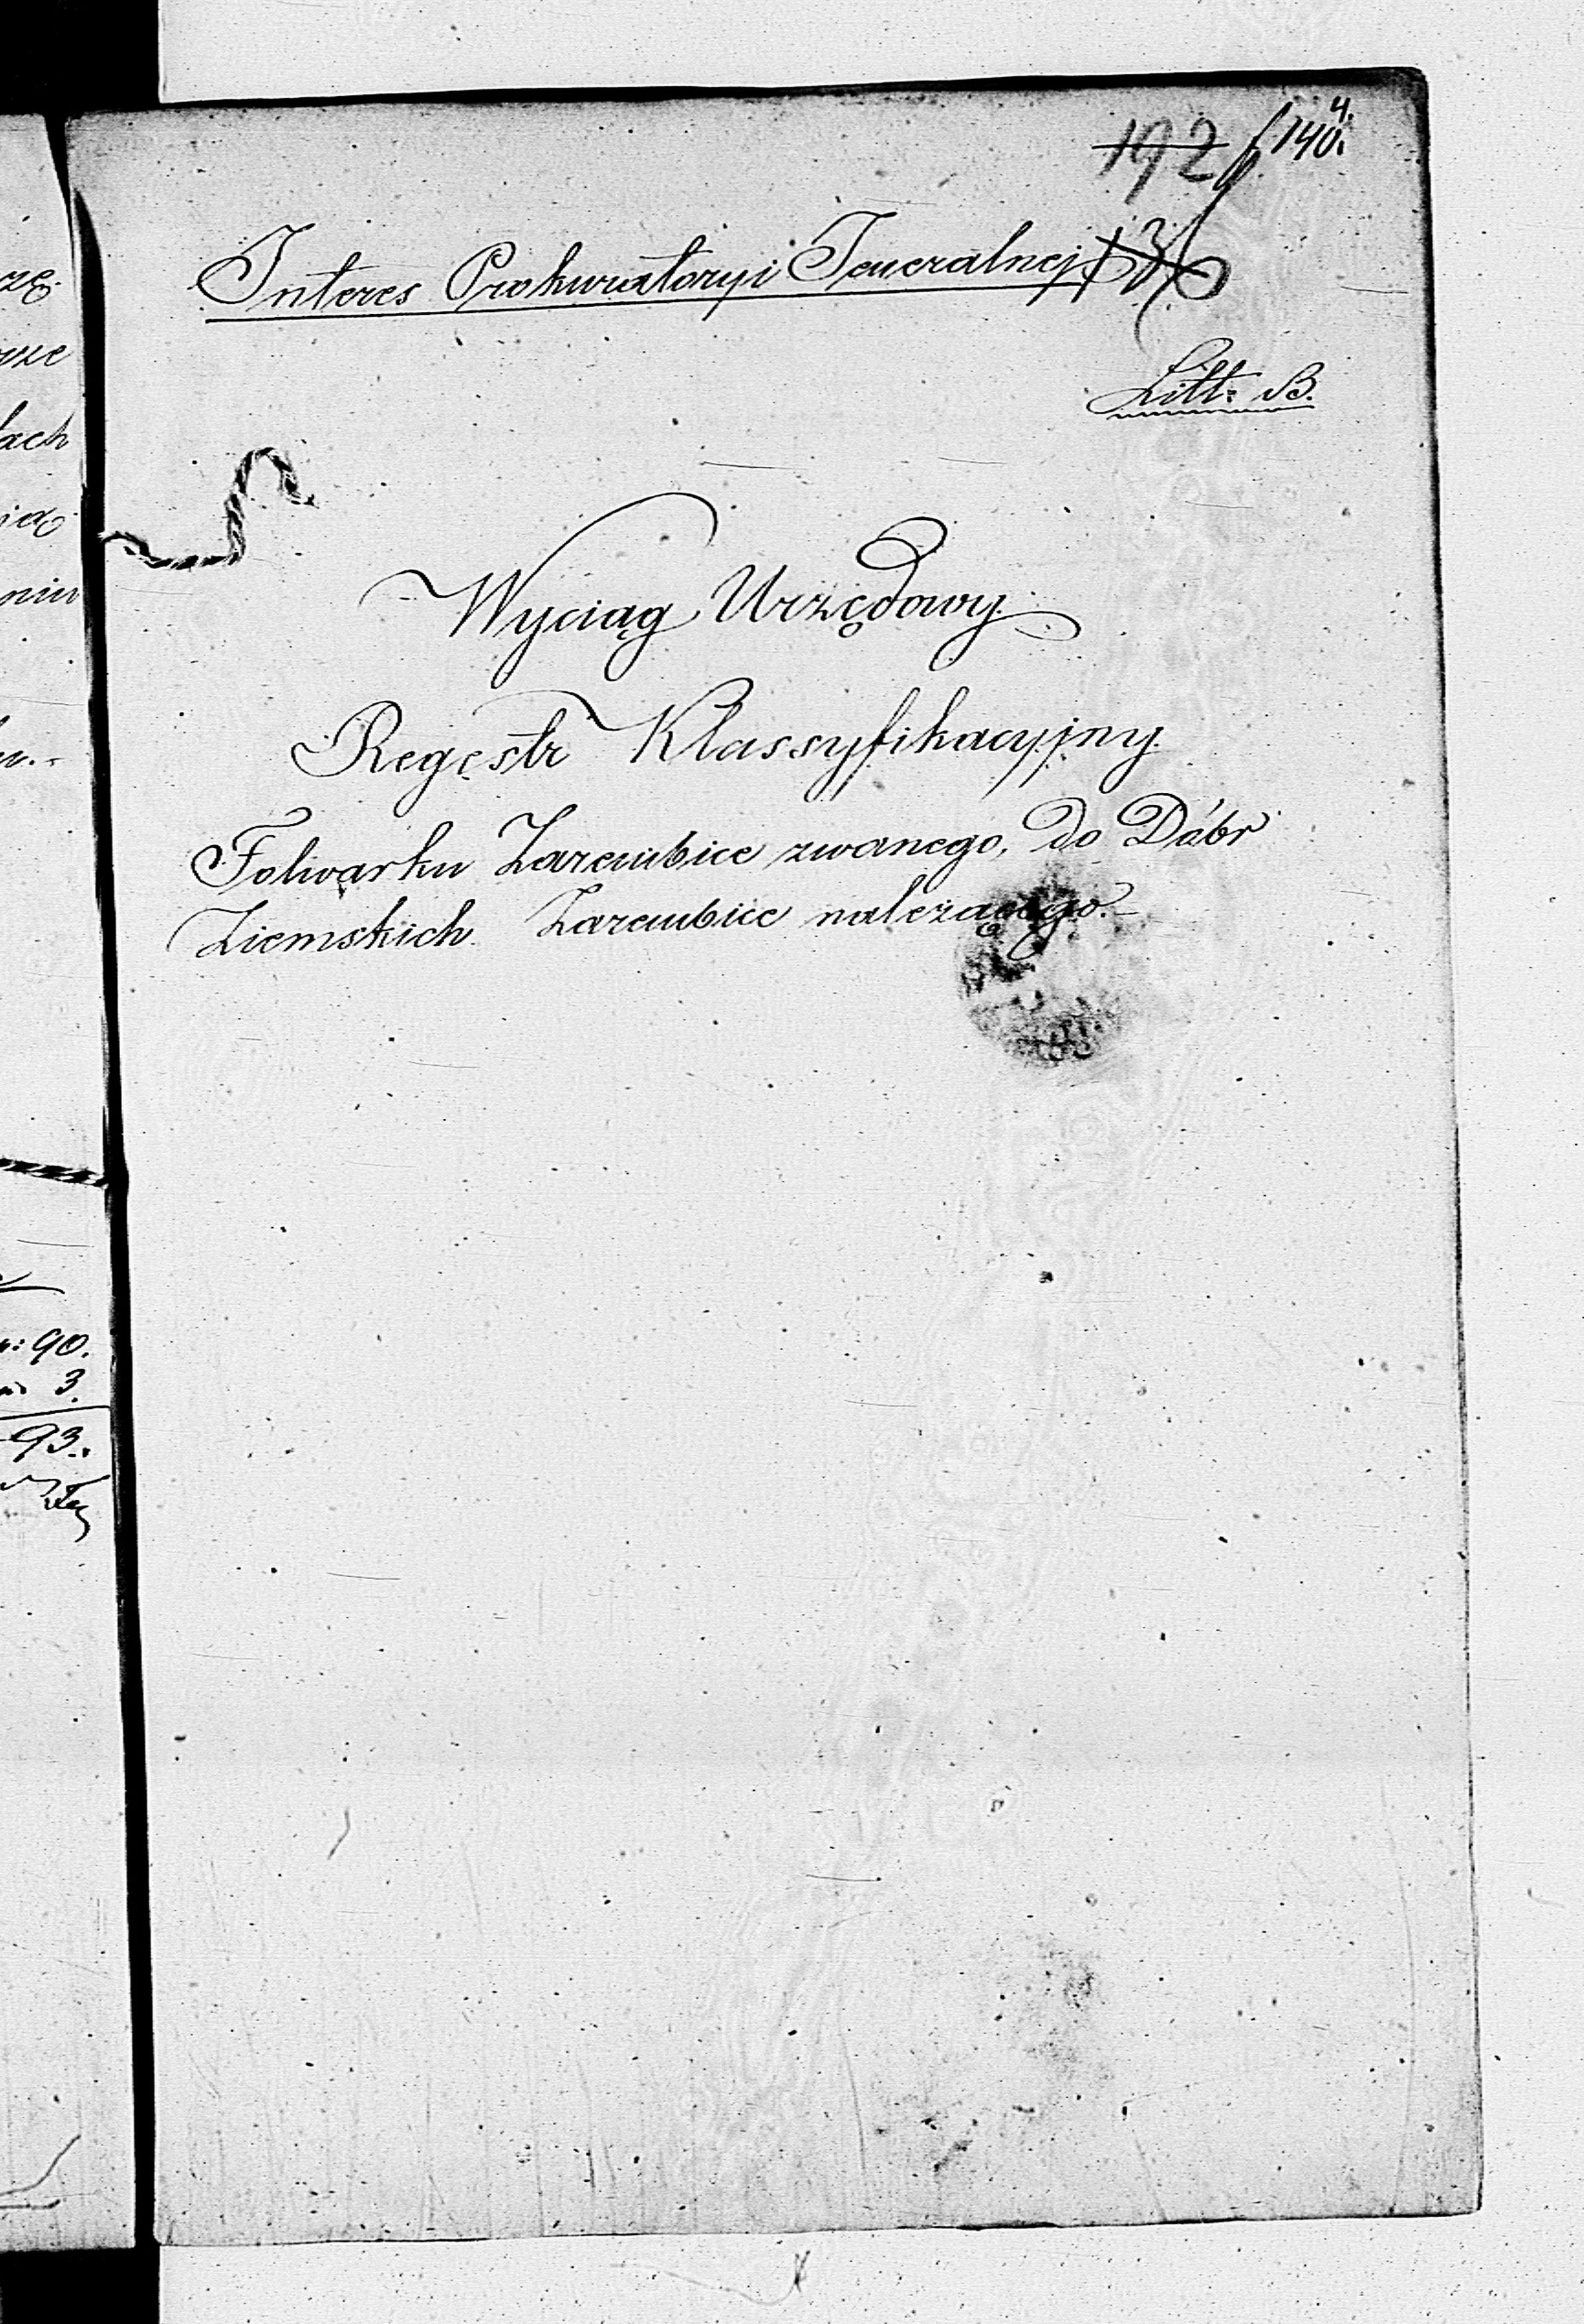 4.
192 140.
Interes Prokuratoryi Jeneralnej
Litt: B.
Wyciąg Urzędowy
Regestr Klassyfikacyjny
Folwarku Zarembice zwanego, do Dóbr
Ziemskich Zarembice należącego.
ach
: 90.
3.
93.